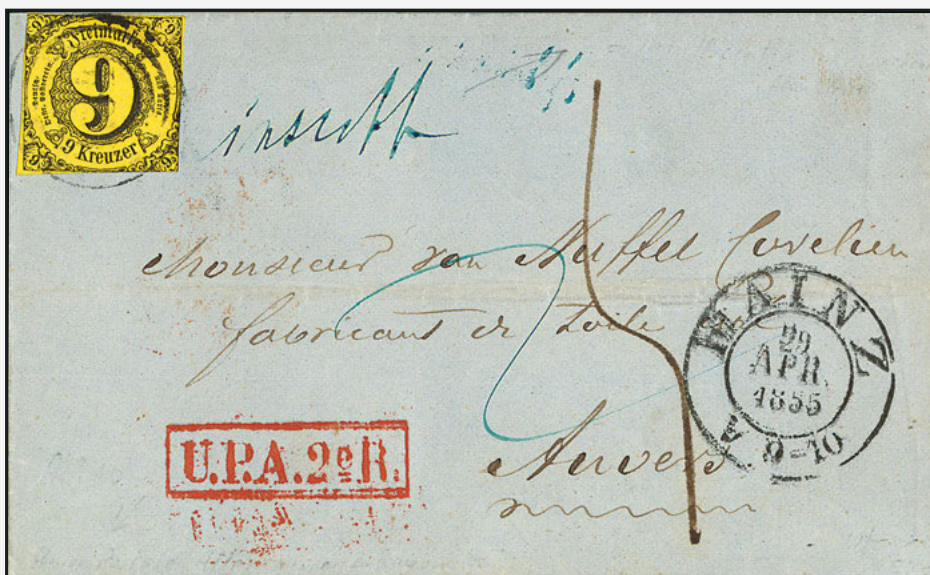 Freimarke
9
9 Kreuzer
9
9
9
9
Monsieur van Nuffel Covelien
fabricant de toile
Anvers
MAINZ
29
APR.
1855
A 9-10
U.P.A. 2º R.